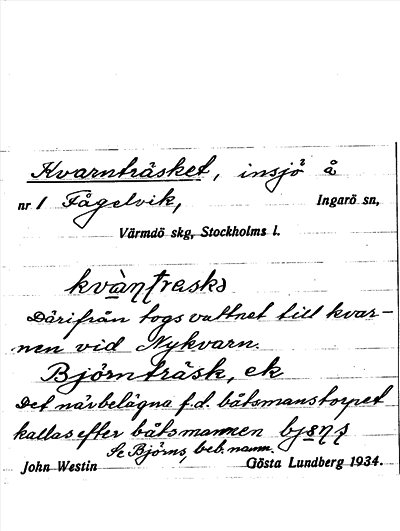 Kvarnträsket, insjö å
nr 1 Fågelvik, Ingarö sn,
Värmdö skg, Stockholms l.
kvà̱ɳʈraskə
Därifrån togs vattnet till kvar-
nen vid Nykvarn.
Björnträsk, ek
Det närbelägna f.d. båtsmanstorpet
kallas efter båtsmannen
Se Björns, beb. namn.
John Westin Gösta Lundberg 1934.